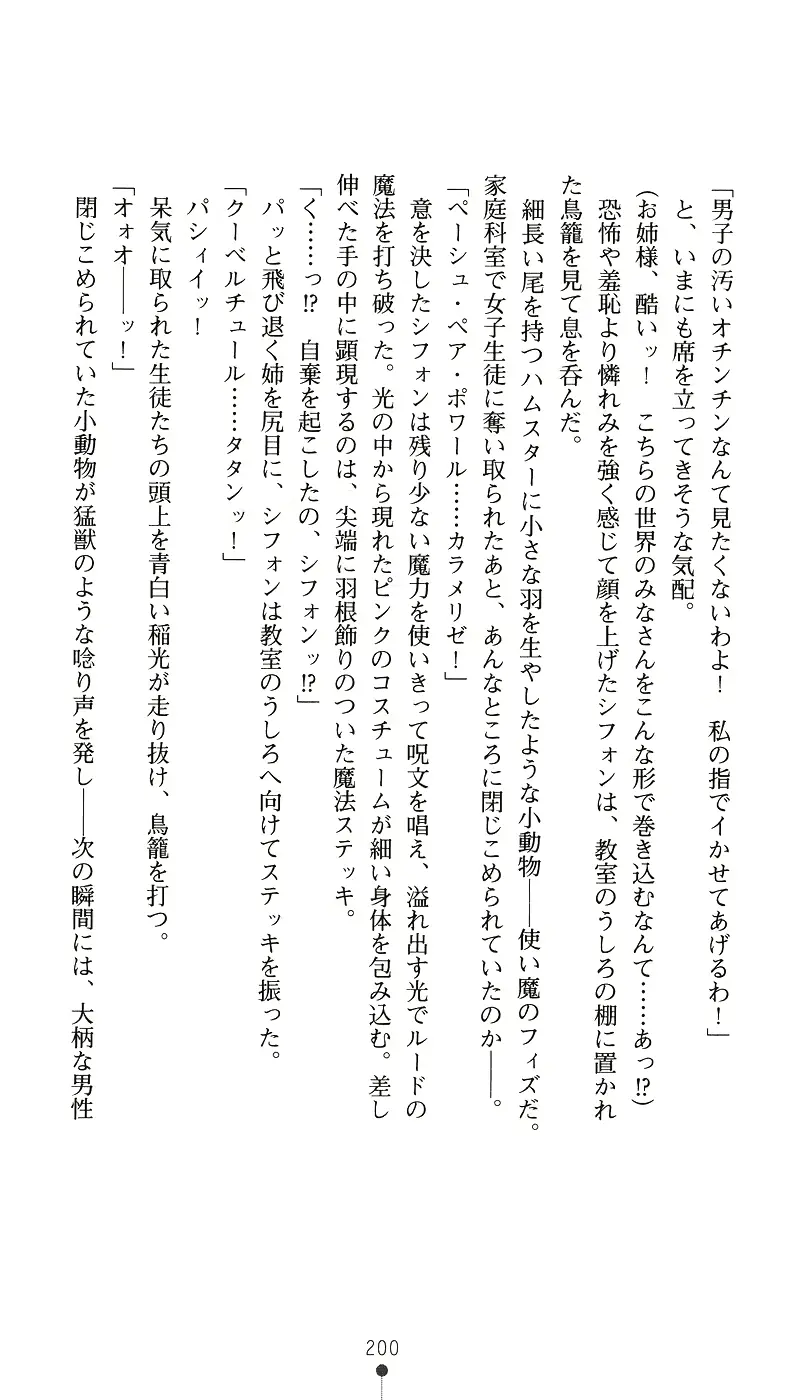 と、いまにも席を立ってきそうな気配。
(お姉様、酷いッ！　こちらの世界のみなさんをこんな形で巻き込むなんて……あっ!?)
恐怖や羞恥より憐れみを強く感じて顔を上げたシフォンは、教室のうしろの棚に置かれ
た鳥籠を見て息を呑んだ。
細長い尾を持つハムスターに小さな羽を生やしたような小動物――使い魔のフィズだ。
家庭科室で女子生徒に奪い取られたあと、あんなところに閉じこめられていたのか――。
「ペーシュ・ペア・ポワール……カラメリゼ！」
意を決したシフォンは残り少ない魔力を使いきって呪文を唱え、溢れ出す光でルードの
魔法を打ち破った。光の中から現れたピンクのコスチュームが細い身体を包み込む。差し
伸べた手の中に顕現するのは、尖端に羽根飾りのついた魔法ステッキ。
「く……っ!?　自棄を起こしたの、シフォンッ!?」
パッと飛び退く姉を尻目に、シフォンは教室のうしろへ向けてステッキを振った。
「クーベルチュール……タタンッ！」
パシィイッ！
呆気に取られた生徒たちの頭上を青白い稲光が走り抜け、鳥籠を打つ。
「オォオ――ッ！」
閉じこめられていた小動物が猛獣のような唸り声を発し――次の瞬間には、大柄な男性
200